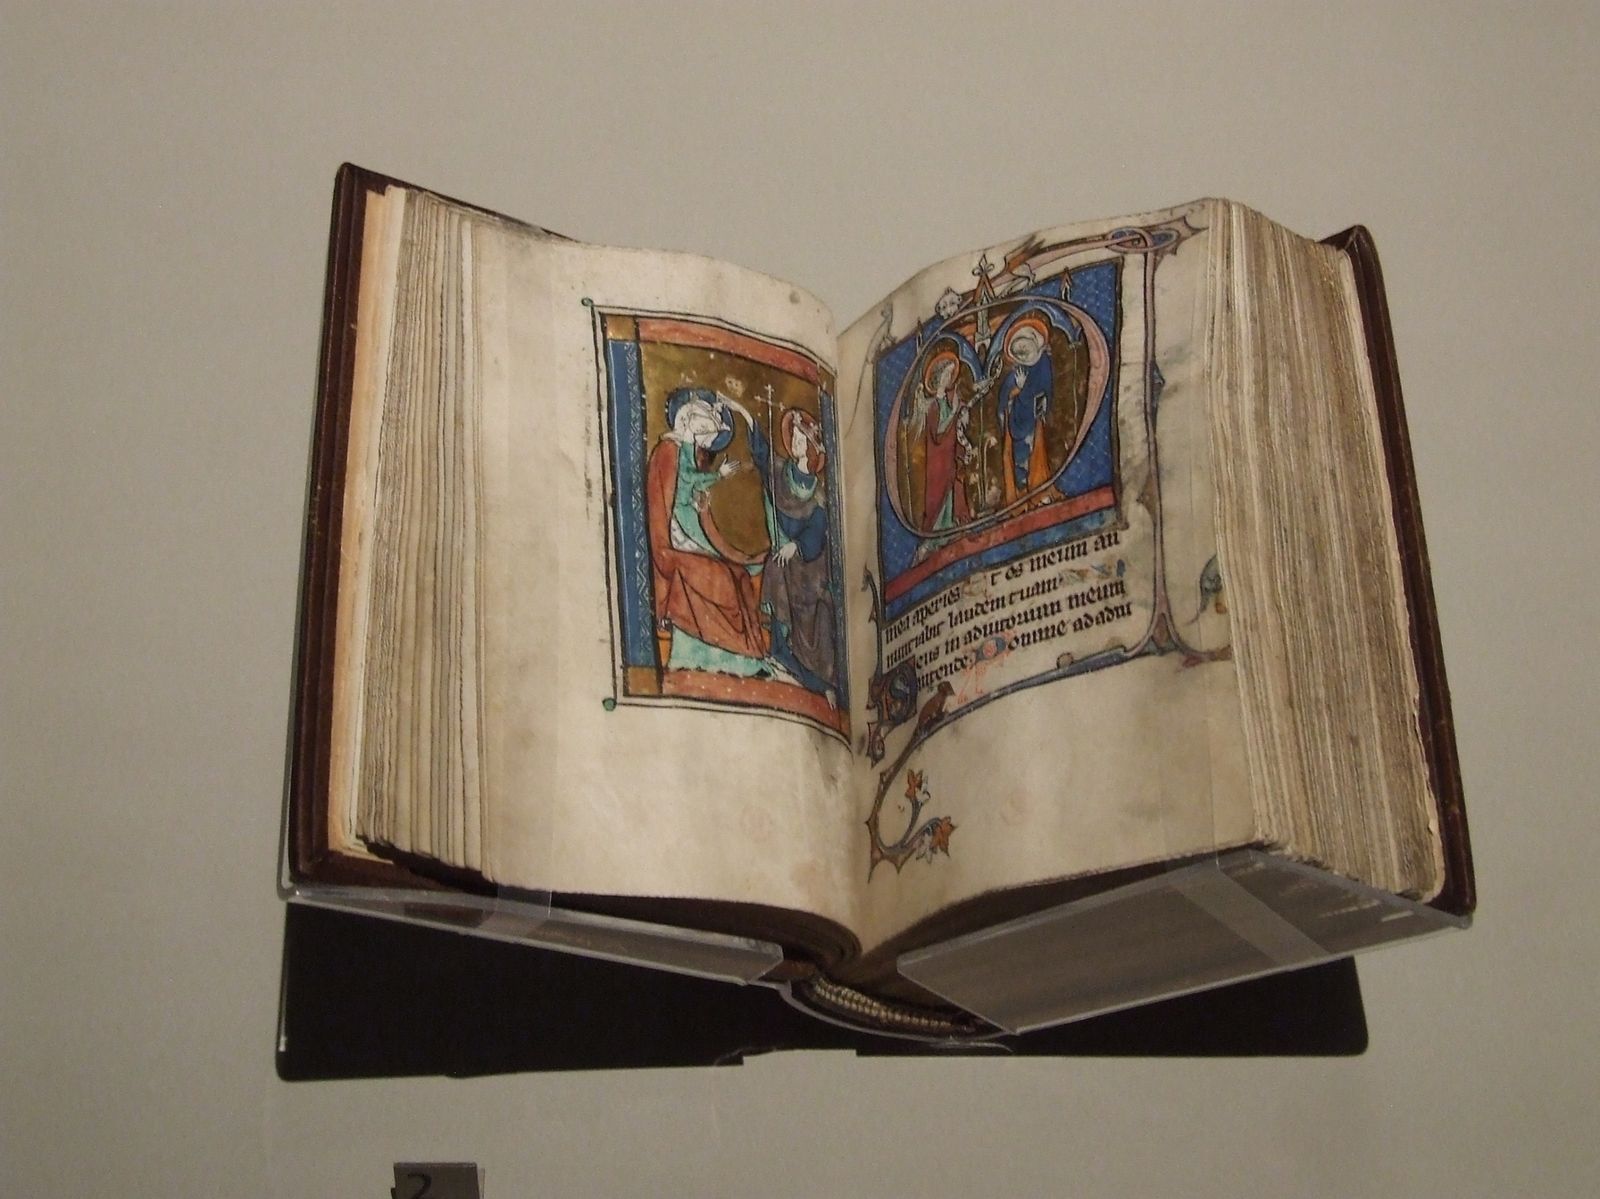 mea aperies Et os meum an
nuntiabit laudem tuam
Deus in adiutorium meum
intende Domine ad adiu
2